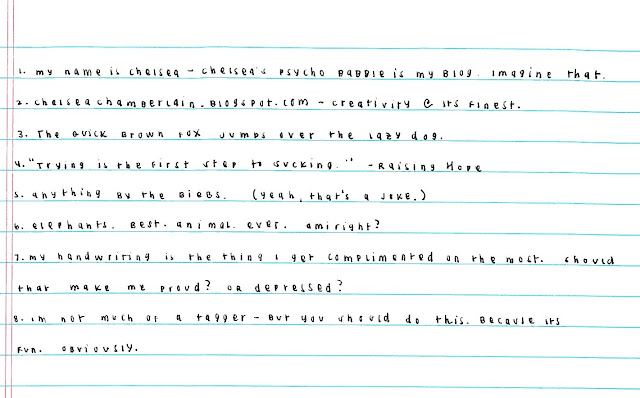 1. my name is chelsea - chelsea's psycho babble is my blog. imagine that.
2. chelseachamberlain.blogspot.com - creativity @ its finest.
3. The quick brown fox jumps over the lazy dog.
4. "Trying is the first step to sucking." - Raising Hope
5. anything by the biebs. (yeah, that's a joke.)
6. elephants. best. animal. ever. amiright?
7. my handwriting is the thing i get complimented on the most. should
that make me proud? or depressed?
8. im not much of a tagger - but you should do this. because its
fun. obviously.